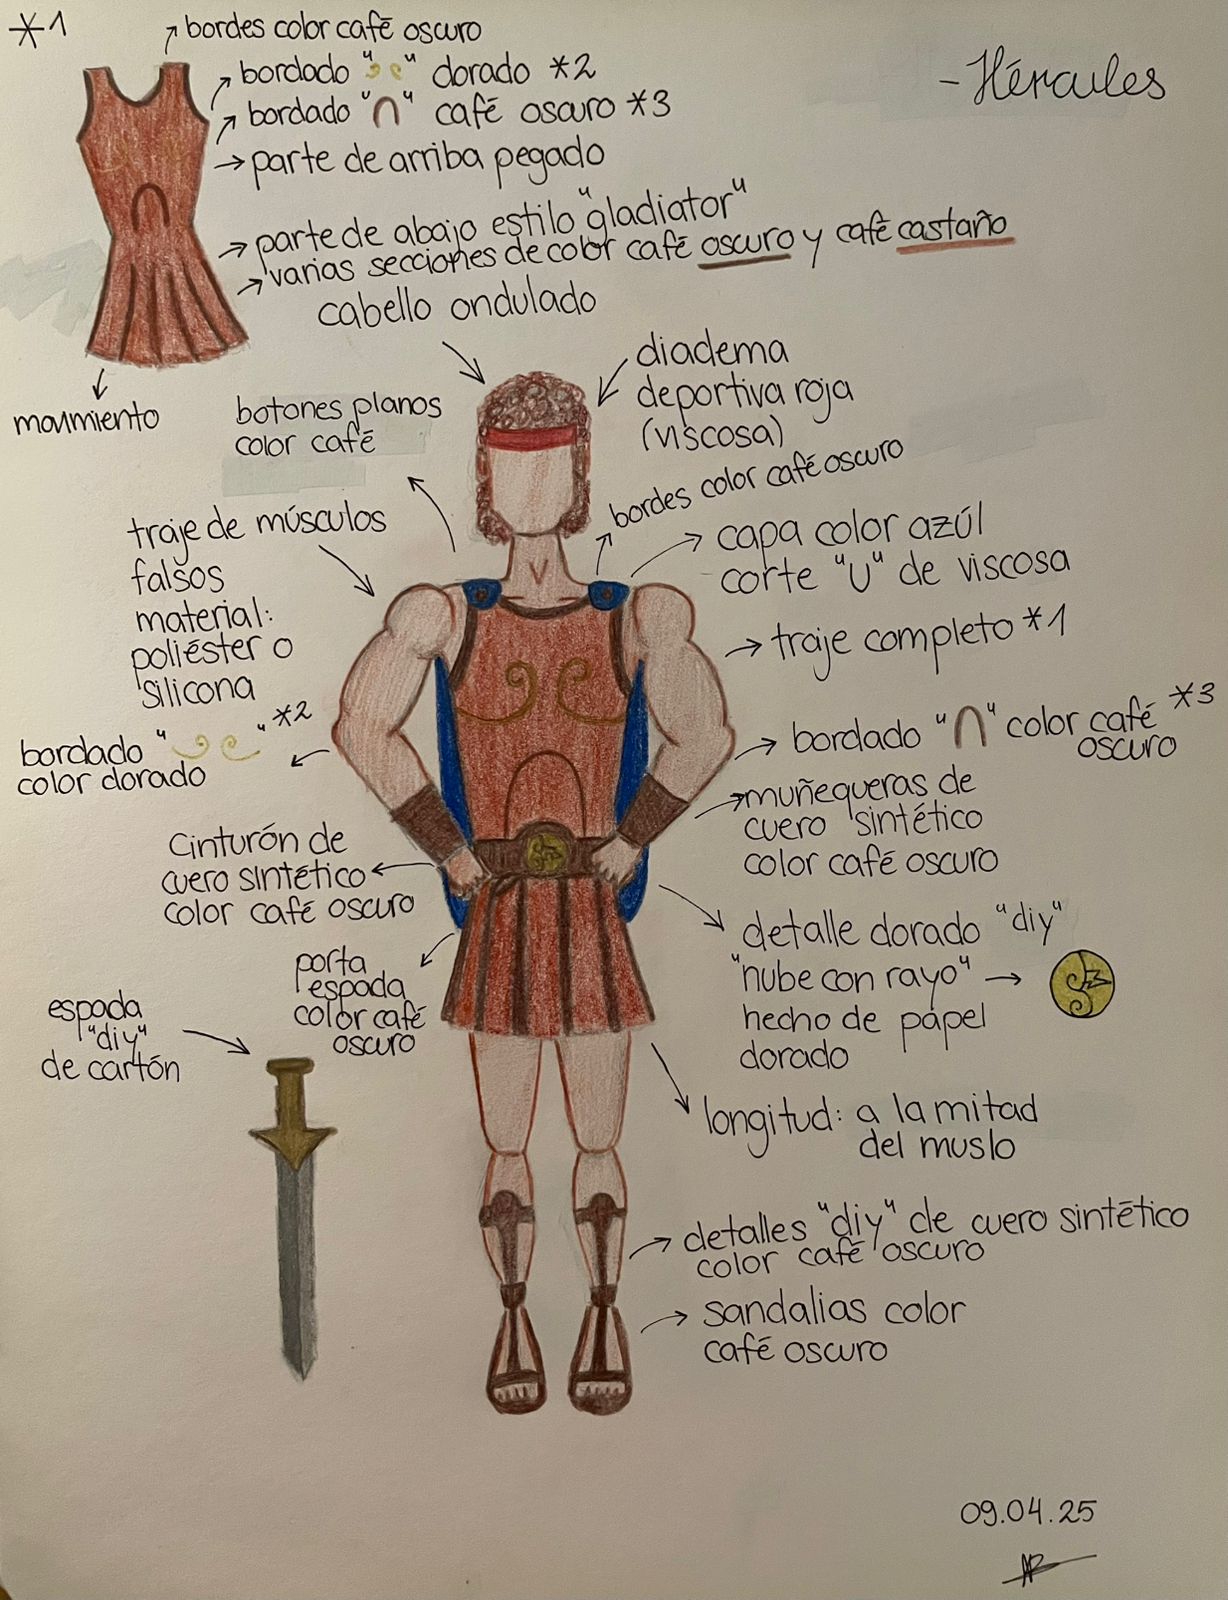 *1
bordes color café oscuro
bordado " " dorado *2
bordado "∩" café oscuro *3
parte de arriba pegado
parte de abajo estilo "gladiator"
varias secciones de color café oscuro y café castaño
movimiento
- Hércules
cabello ondulado
diadema
deportiva roja
(viscosa)
botones planos
color café
bordes color café oscuro
traje de músculos
falsos
material:
poliéster o
silicona
capa color azúl
corte "U" de viscosa
traje completo *1
bordado " " *2
color dorado
bordado "∩" color café *3
oscuro
muñequeras de
cuero sintético
color café oscuro
Cinturón de
cuero sintético
color café oscuro
detalle dorado "diy"
"nube con rayo"
hecho de papel
dorado
porta
espada
color café
oscuro
espada
"diy"
de cartón
longitud: a la mitad
del muslo
detalles "diy" de cuero sintético
color café oscuro
sandalias color
café oscuro
09.04.25